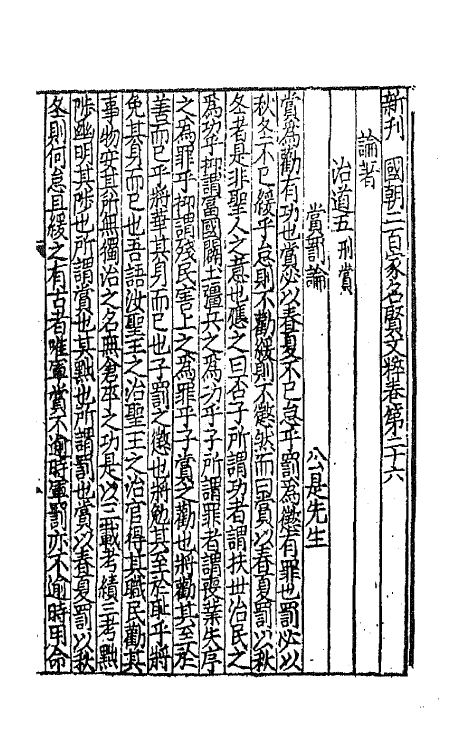 新刊國朝二百家名賢文粹卷第二十六
論著
治道五 刑賞
賞罰論 公是先生
賞為勸有功也賞必以春夏不已怠乎罰為懲有罪也罰必以
秋冬不已緩乎怠則不勸緩則不懲然而曰賞以春夏罰以秋
冬者是非聖人之意也應之曰否子所謂功者謂扶世治民之
為功乎抑謂富國闢土彊兵之為功乎子所謂罪者謂喪業失序
之為罪乎抑謂殘民害上之為罪乎子賞之勸也將勸其至於
善而已乎將華其身而已也子罰之懲也將勉其至於恥乎將
免其身而已也吾語汝聖王之治聖王之治官得其職民勸其
事物安其所無獨治之名無倉卒之功是以三載考績三考黜
陟幽明其陟也所謂賞也其黜也所謂罰也賞以春夏罰以秋
冬則何怠且緩之有古者唯軍賞不逾時軍罰亦不逾時用命